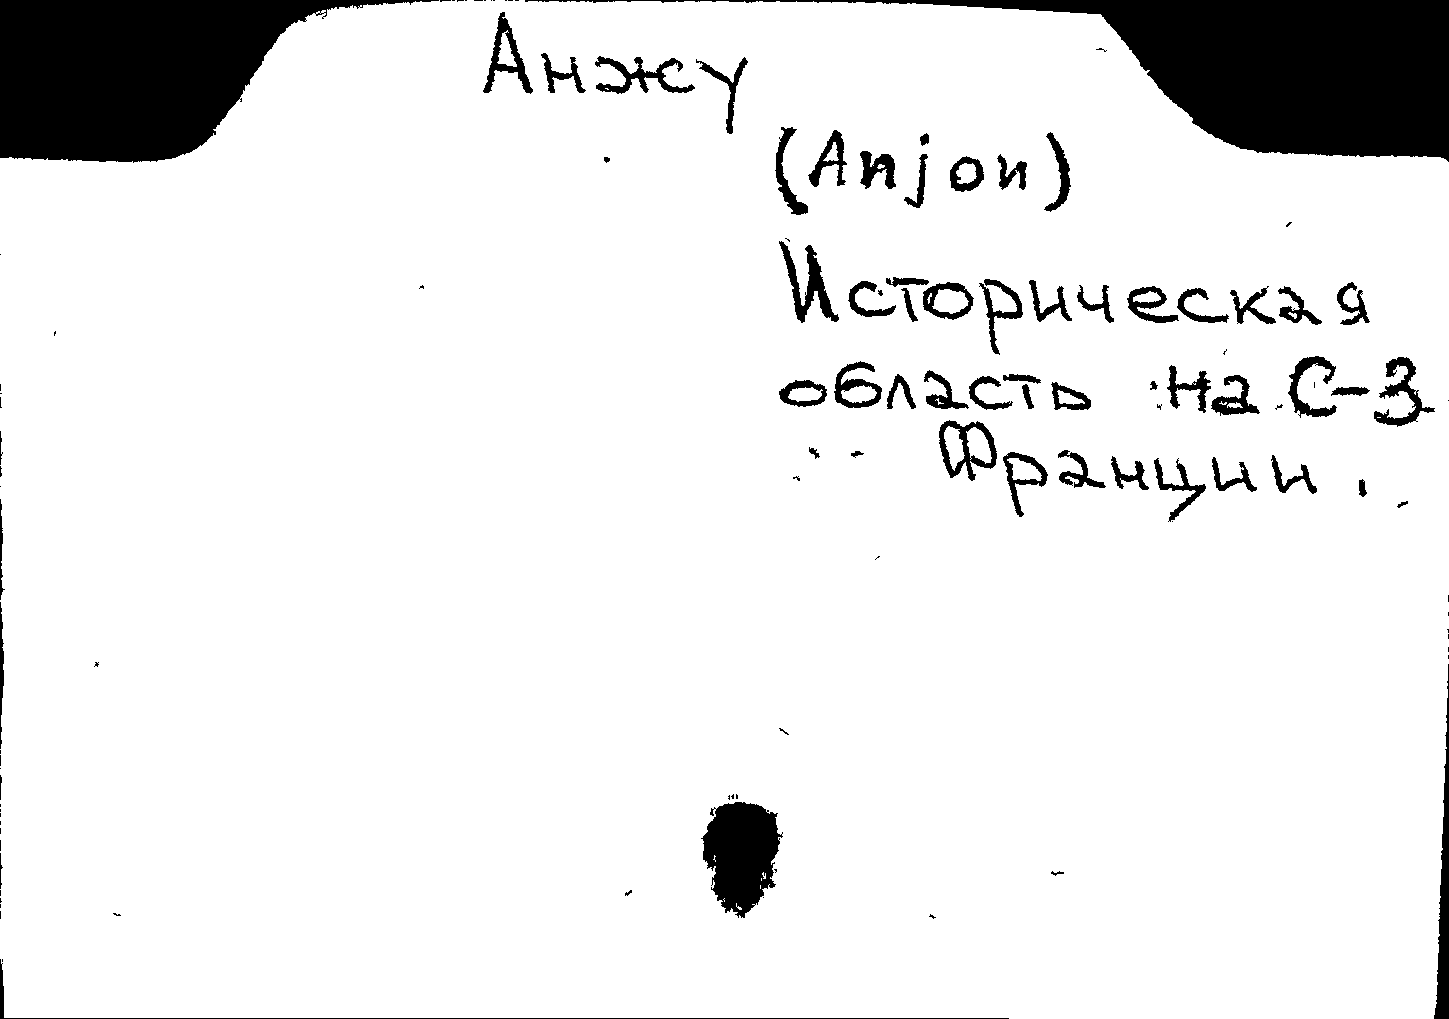 Анжу
(Anjou)
Историческая
область на С-З
Франции.